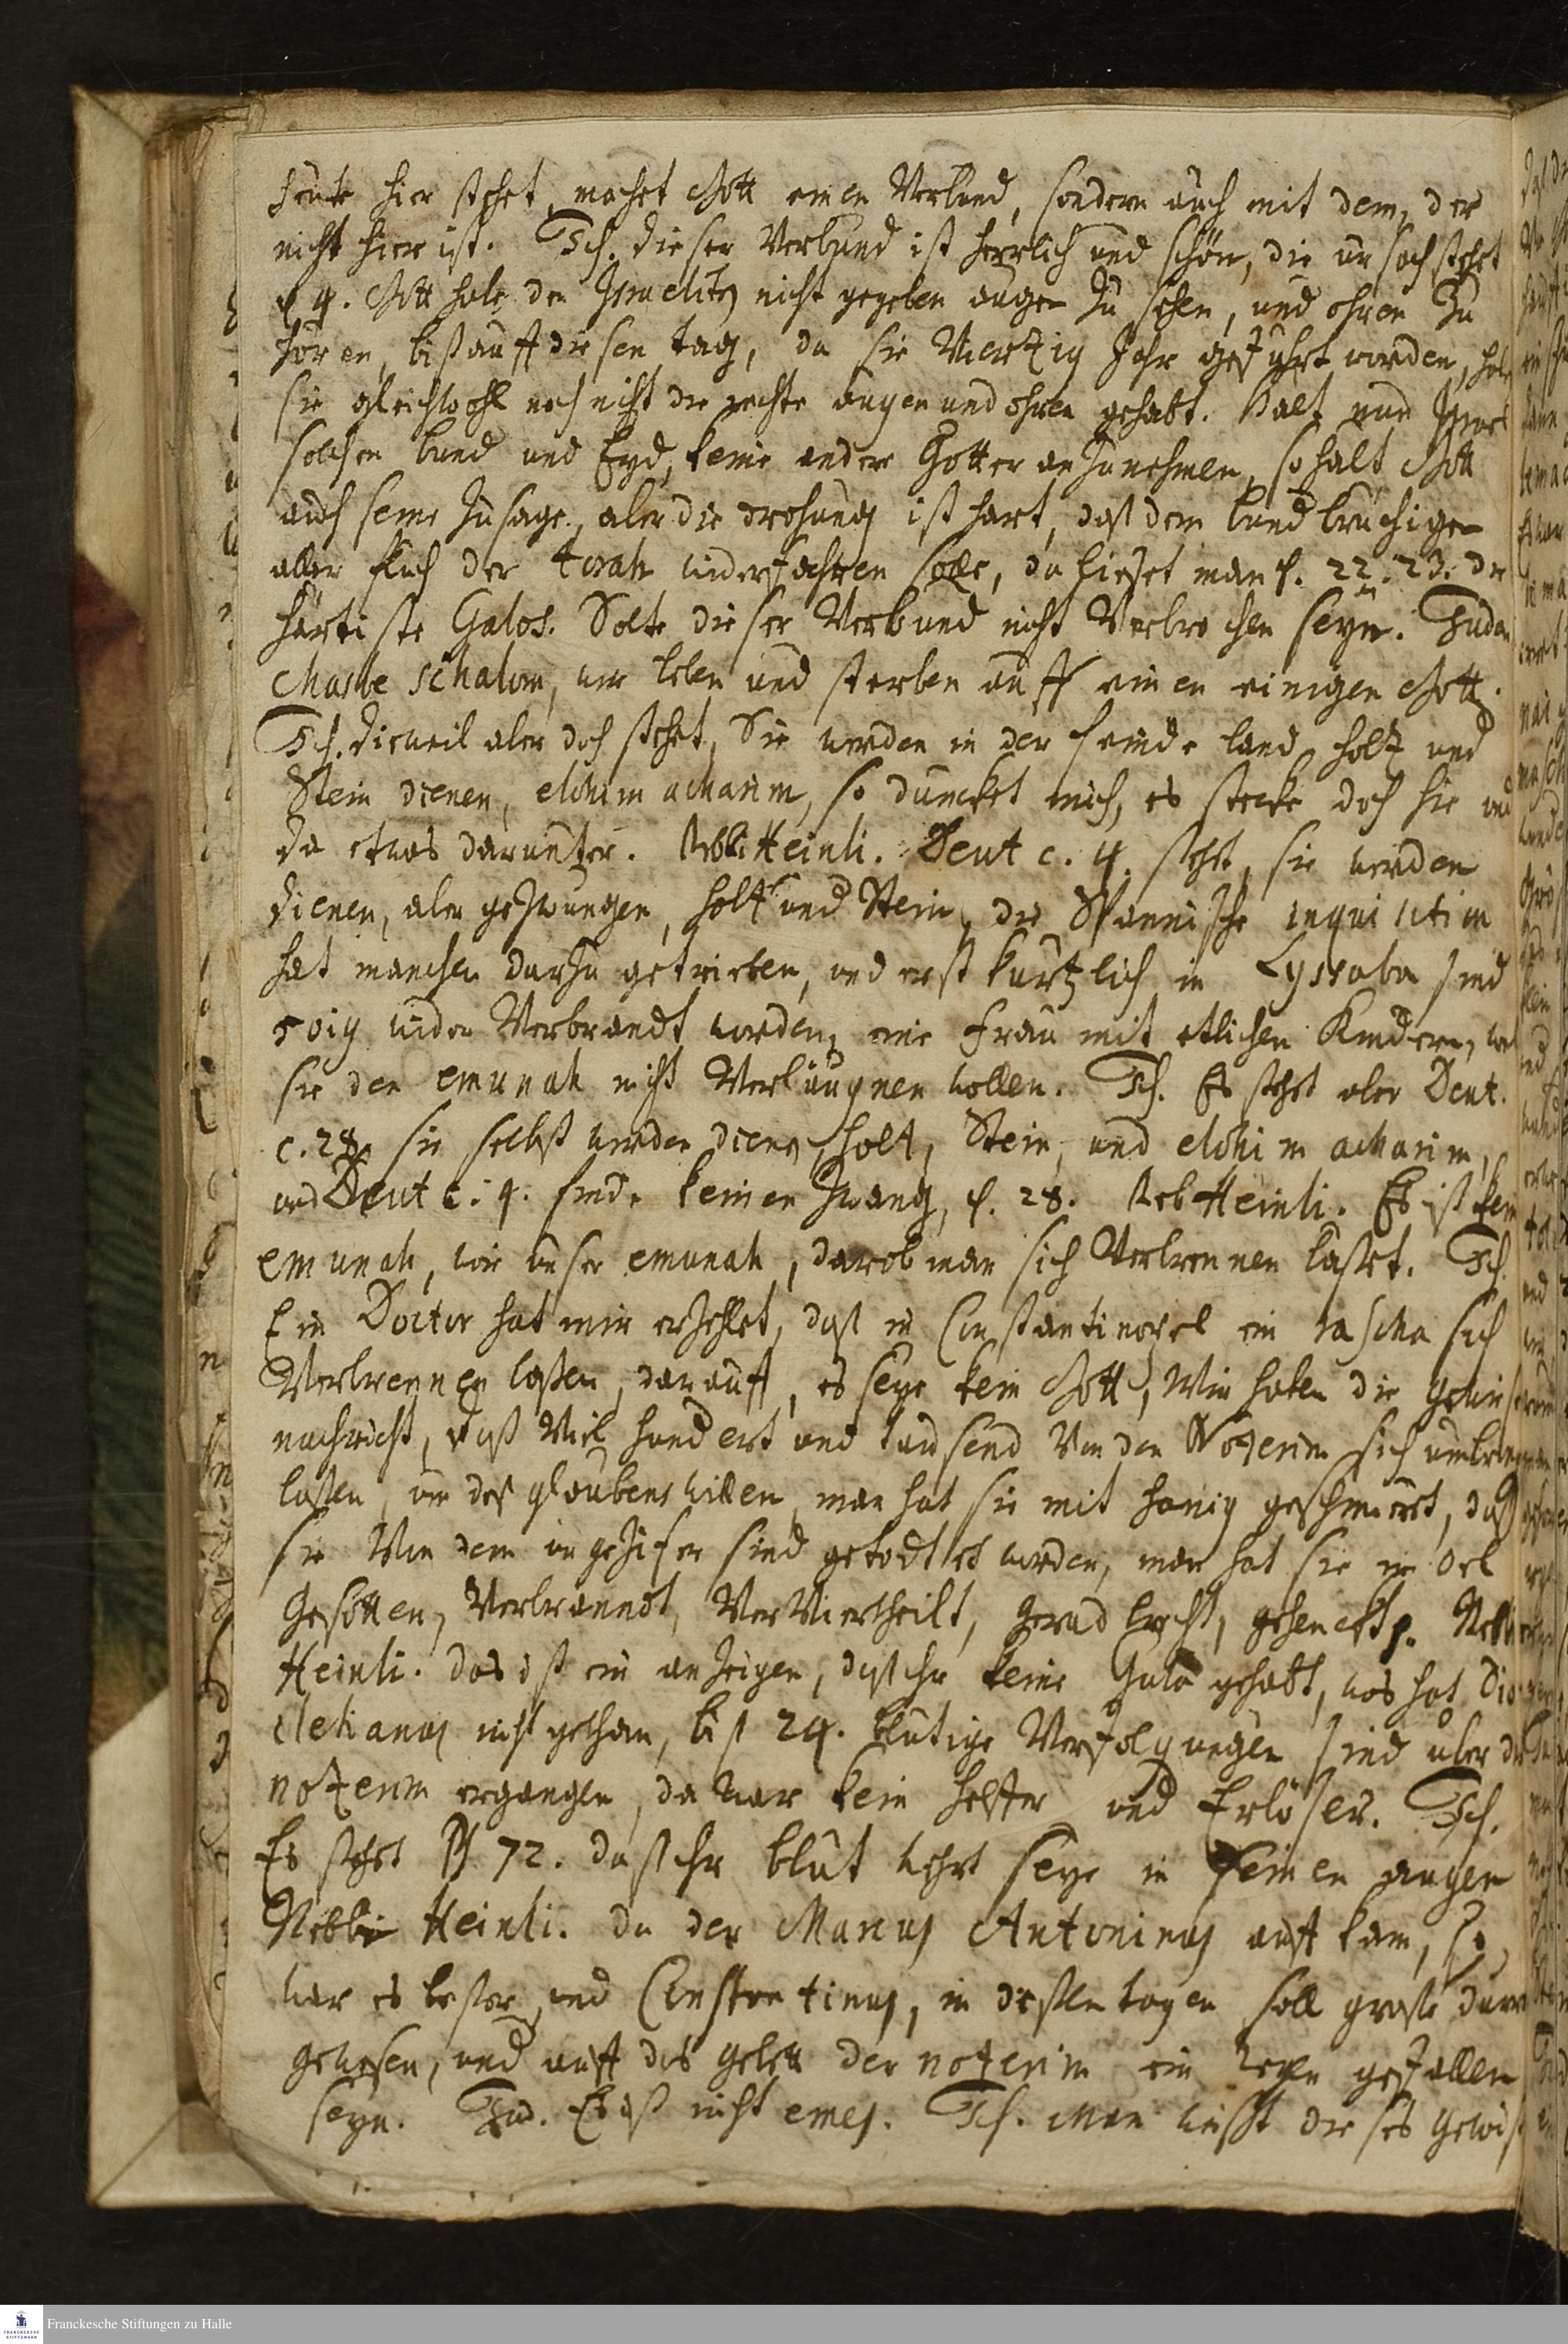 heute hier stehet, machet Gott einen Verbund, sondern auch mit dem, der
nicht hier ist. Ich. dieser Verbund ist herrlich und schön, die ursach stehet
v 4. Gott habe den Israeliten nicht gegeben augen zu sehen, und ohren zu
hören, biß auff diesen tag, da sie Viertzig Jahr geführt worden, habe
sie gleichwohl noch nicht die rechte augen und ohren gehabt. Halt nun Israel
solchen bund und Eyd, keine andere Götter anzunehmen, so halt Gott
auch seine zusage, aber die drohung ist hart, daß dem bundbrüchigen
aller fluch der torah widerfahren solle, da lieset man v. 22. 23. die
härtiste Galos. Solte dieser Verbund nicht Verbrochen seyn. Juden
Chasbe schalom, wir leben und sterben auff einen einigen Gott.
Ich. dieweil aber doch stehet, Sie werden in der feinde land holtz und
Stein dienen, elohim acharim, so duncket mich, es stecke doch hie und
da etwas darunter. Rebbi Heinli. Deut c. 4. stehet, sie werden
dienen, aber gezwungen, holtz und Stein, die Spannische inquisition
hat manchen darzu getrieben, und erst kürtzlich in Lyssabon sind
wider Verbrandt worden, eine frau mit etlichen Kindern, weil
sie den emunah nicht Verläugnen wollen. Ich. Es stehet aber Deut.
c. 28. sie selbst werden dienen holtz, Stein, und elohim acharim,
und Deut c. 4. finde keinen zwang, v. 28. Reb Heinli. Es ist kein
emunah, wie unser emunah, darob man sich Verbrennen lasset. Ich
Ein Doctor hat mir erzehlet, daß in Constantinopel ein rascha sich
Verbrennen lassen, darauff, es seye kein Gott, Wir haben die gewisse
nachricht, daß Viel hundert und tausend Von den Nozerim sich umbringen
lassen, um des glaubens willen, man hat sie mit honig geschmiert, daß
sie Von dem ungezifer sind getödtet worden, man hat sie in oel
gesotten, Verbrannet, Verviertheilt, geradbrecht, gehenckt p. Rebbi
Heinli. das ist ein anzeigen, daß ihr keine Gula gehabt, was hat Dio
cletianus nicht gethan, biß 24. blutige Verfolgungen sind über die
nozerim ergangen, da war kein helffer und Erlöser. Ich.
Es stehet Ps 72. daß ihr blut wehrt seye in seinen augen
Rebbi Heinli. da der Marcus Antoninus auff kam, so
war es besser, und Constantinus, in dessen tagen soll grosse dürre
gewesen, und auff das gebett der nozerim ein regen gefallen
seyn. Jud. Es ist nicht emes. Ich. man weißt dieses gewiß
Franckesche Stiftungen zu Halle